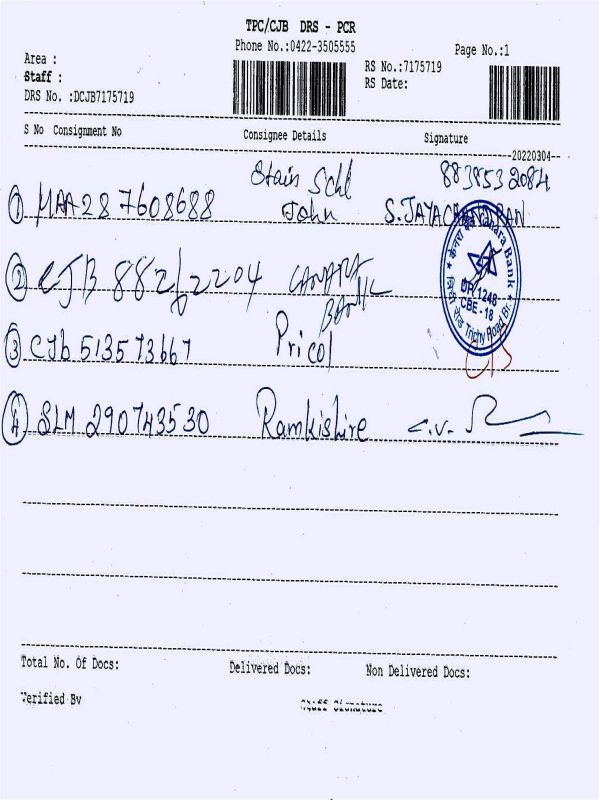 TPC/CJB DRS - PCR
Phone No.:0422-3505555
Page No.:1
Area :
RS No.:7175719
Staff :
RS Date:
DRS No. :DCJB7175719
S No Consignment No Consignee Details Signature
20220304
Stain Schl 8838532084
1 MAA287608688 John S.JAYACHANDRAN
2 CJB 882/2204 CANARA
BANK
3 CJb 513573667 Pricol
4 SLM 290743530 Ramkishire C.V.
केनरा बैंक Canara Bank
DP 1248
CBE - 18
Trichy Road Br.
Total No. Of Docs: Delivered Docs: Non Delivered Docs:
Verified By Staff Signature